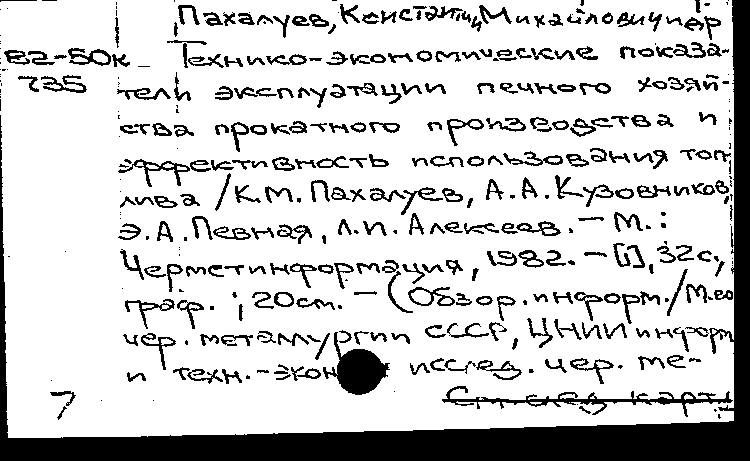 Пахалуев, Константин Михайлович и др
82-50к Технико-экономические показа-
735 тели эксплуатации печного хозяй-
ства прокатного производства и
эффективность использования топ
лива / К.М. Пахалуев, А.А. Кузовников,
Э.А. Певная, Л.И. Алексеев. — М.:
Черметинформация, 1982. — [1], 32с.,
граф. ; 20см. — (Обзор. информ. / М-во
чер. металлургии СССР, ЦНИИ информ
и техн.-экон исслед. чер. ме-
7 См. след. карт